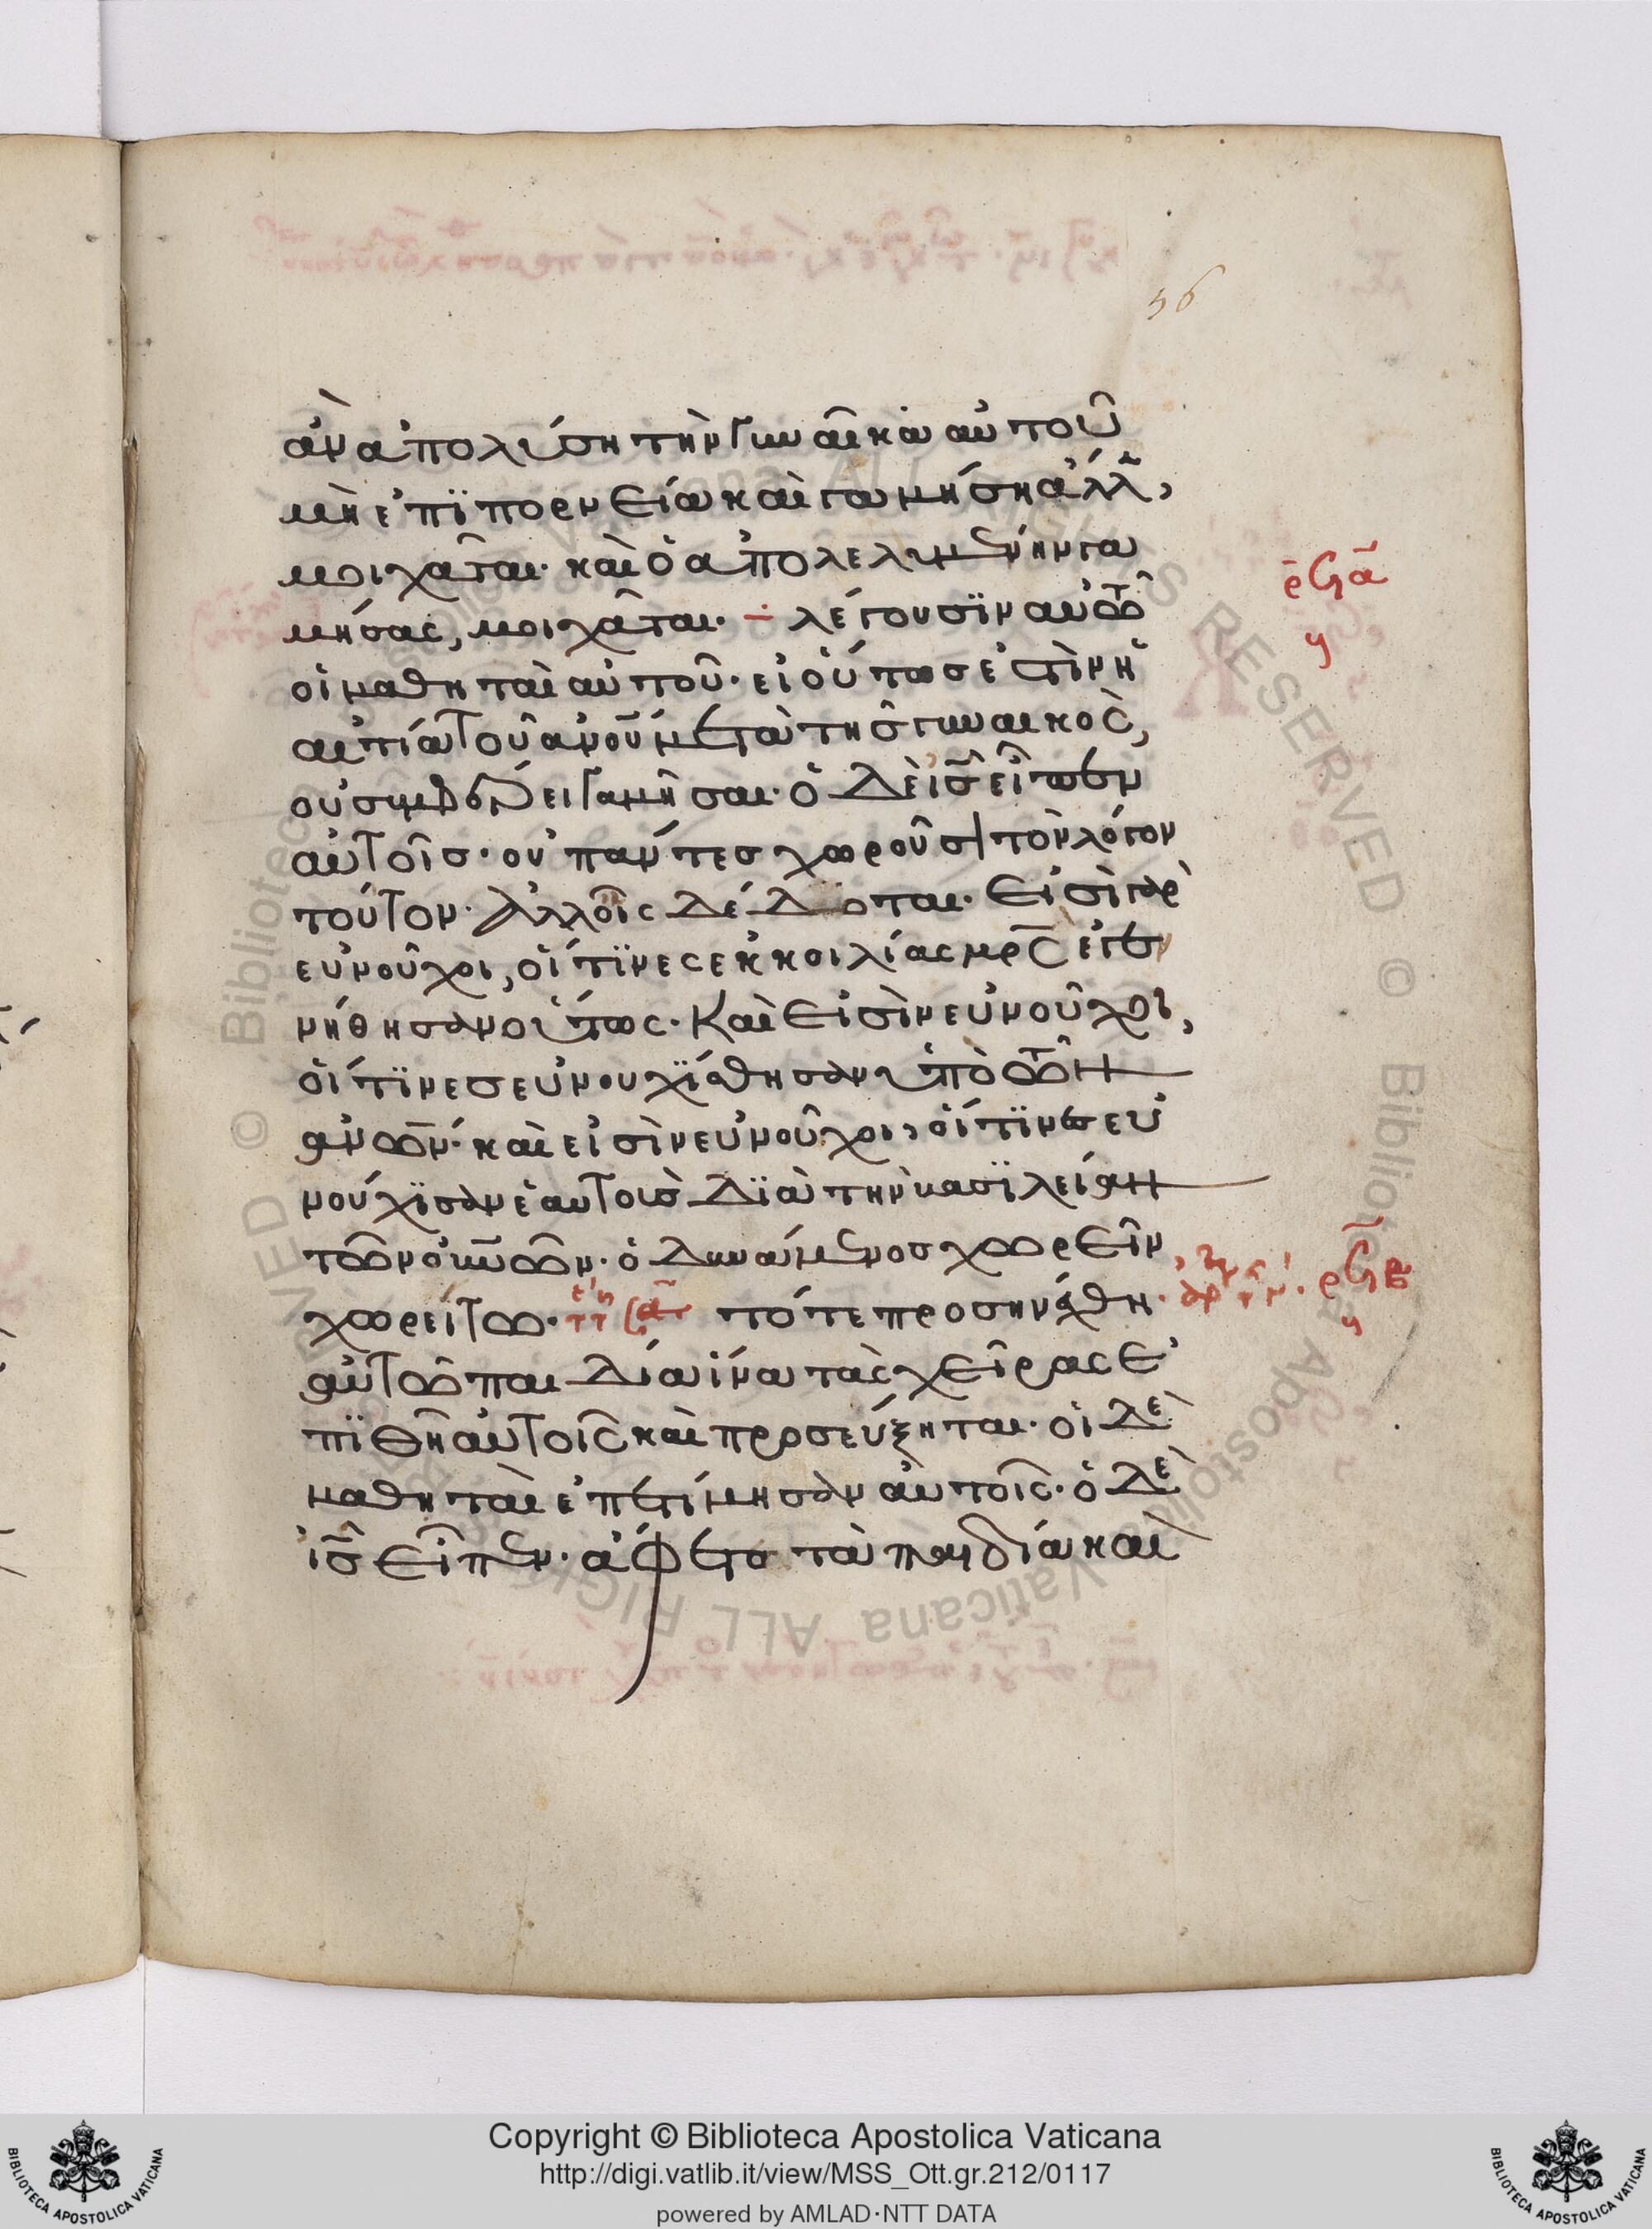 56
ἂν ἀπολύση τὴν γυναῖκα αὐτοῦ
μὴ ἐπῒ πορνεία καὶ γαμήση ἄλλ,
μοιχᾶται· καὶ ὁ ἀπολελυμένην γα
μήσας, μοιχᾶται. ÷ λέγουσϊν αὐτῶ
οἱ μαθηταὶ αὐτοῦ· εἰ οὕτως ἐστὶν ἡ
αἰτία τοῦ ἀνοῦ μετὰ τῆς γυναικὸς,
οὐ συμφέρει γαμῆσαι· ὁ δὲ ισ εἶπεν
αὐτοῖς· οὐ πάντες χωροῦσι τὸν λόγον
τοῦτον· ἀλλ οἷς δέδοται· εἰσὶ γὰρ
εὐνοῦχοι, οἵτϊνες ἐκ κοιλίας μρς ἐγε
νήθησαν οὕτως· καὶ εἰσὶν εὐνοῦχοι,
οἵτϊνες εὐνουχΐσθησαν ὑπὸ τῶν
ἀνων· καὶ εἰσὶν εὐνοῦχοι, οἵτϊνες εὐ
νούχϊσαν ἑαυτοὺς δϊὰ τὴν βασϊλείαν
τῶν οὐνων· ὁ δυνάμενος χωρεῖν,
χωρείτω· τότε προσηνέχθη
αὐτῶ παιδία ἵνα τὰς χεῖρας ἐ
πϊθῆ αὐτοῖς καὶ προσεύξηται· οἱ δὲ
μαθηταὶ ἐπετίμησαν αὐτοῖς· ὁ δὲ
ισ εἶπεν· ἄφετε τὰ παιδία καὶ
Copyright © Biblioteca Apostolica Vaticana
http://digi.vatlib.it/view/MSS_Ott.gr.212/0117
powered by AMLAD·NTT DATA